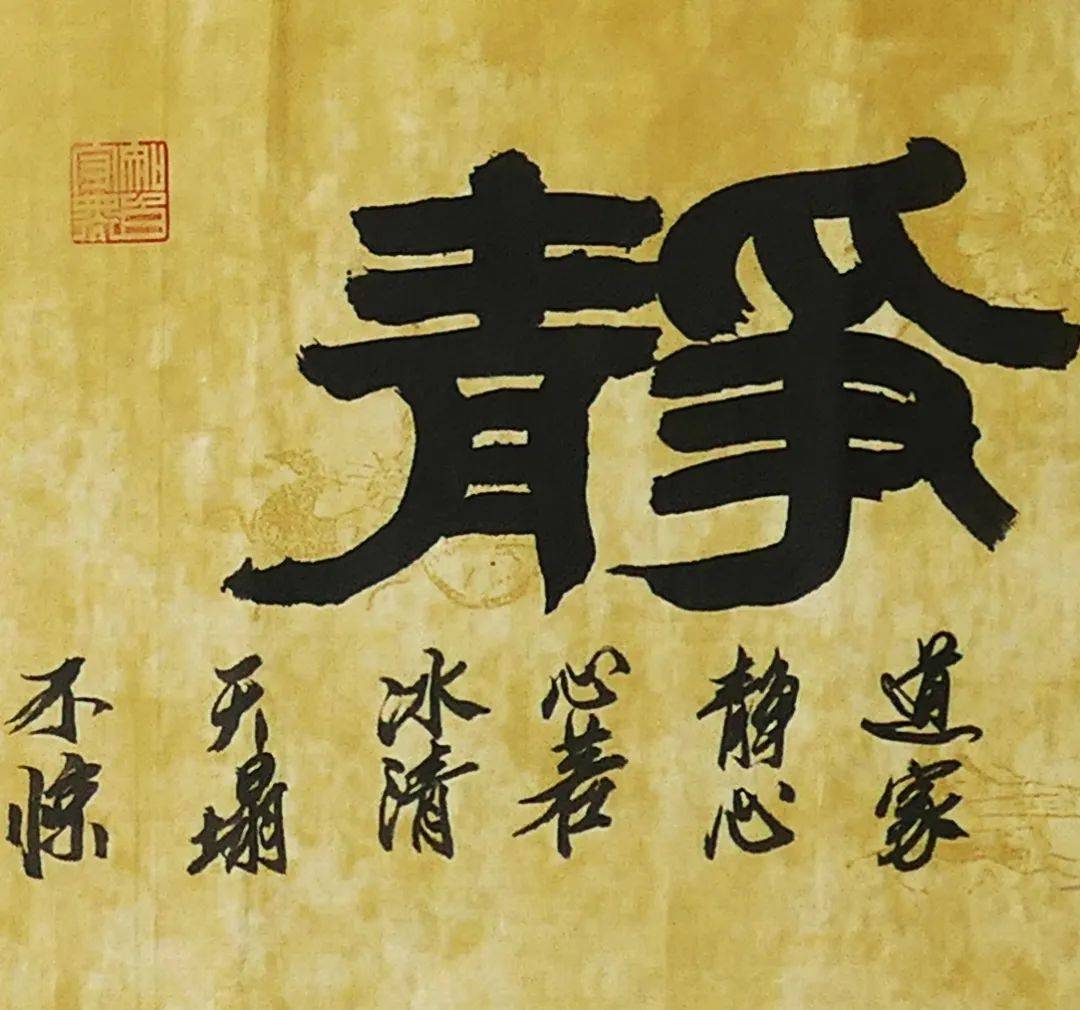 靜
道家
静心
心若
冰清
天塌
不惊